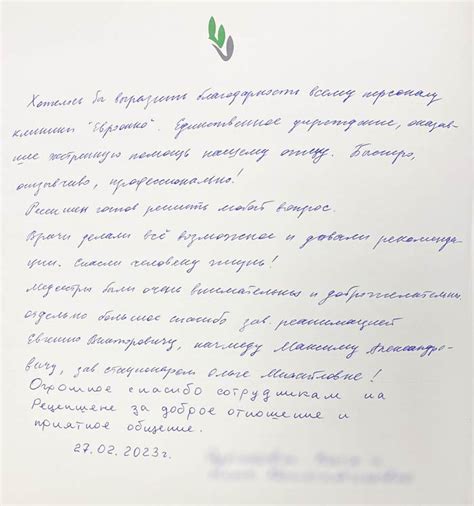 Хотелось бы выразить благодарность всему персоналу
клиники "Евроонко". Единственное учреждение, оказав-
шее экстренную помощь нашему отцу. Быстро,
отзывчиво, профессионально!
Ресепшен готов решить любой вопрос.
Врачи делали всё возможное и давали рекоменда-
ции. Спасли человеку жизнь!
Медсестры были очень внимательны и доброжелательны
отдельно большое спасибо зав. реанимацией
Евгению Викторовичу, начмеду Максиму Александро-
вичу, зав стационаром Ольге Михайловне!
Огромное спасибо сотрудникам на
Рецепшене за доброе отношение и
приятное общение.
27.02.2023г.